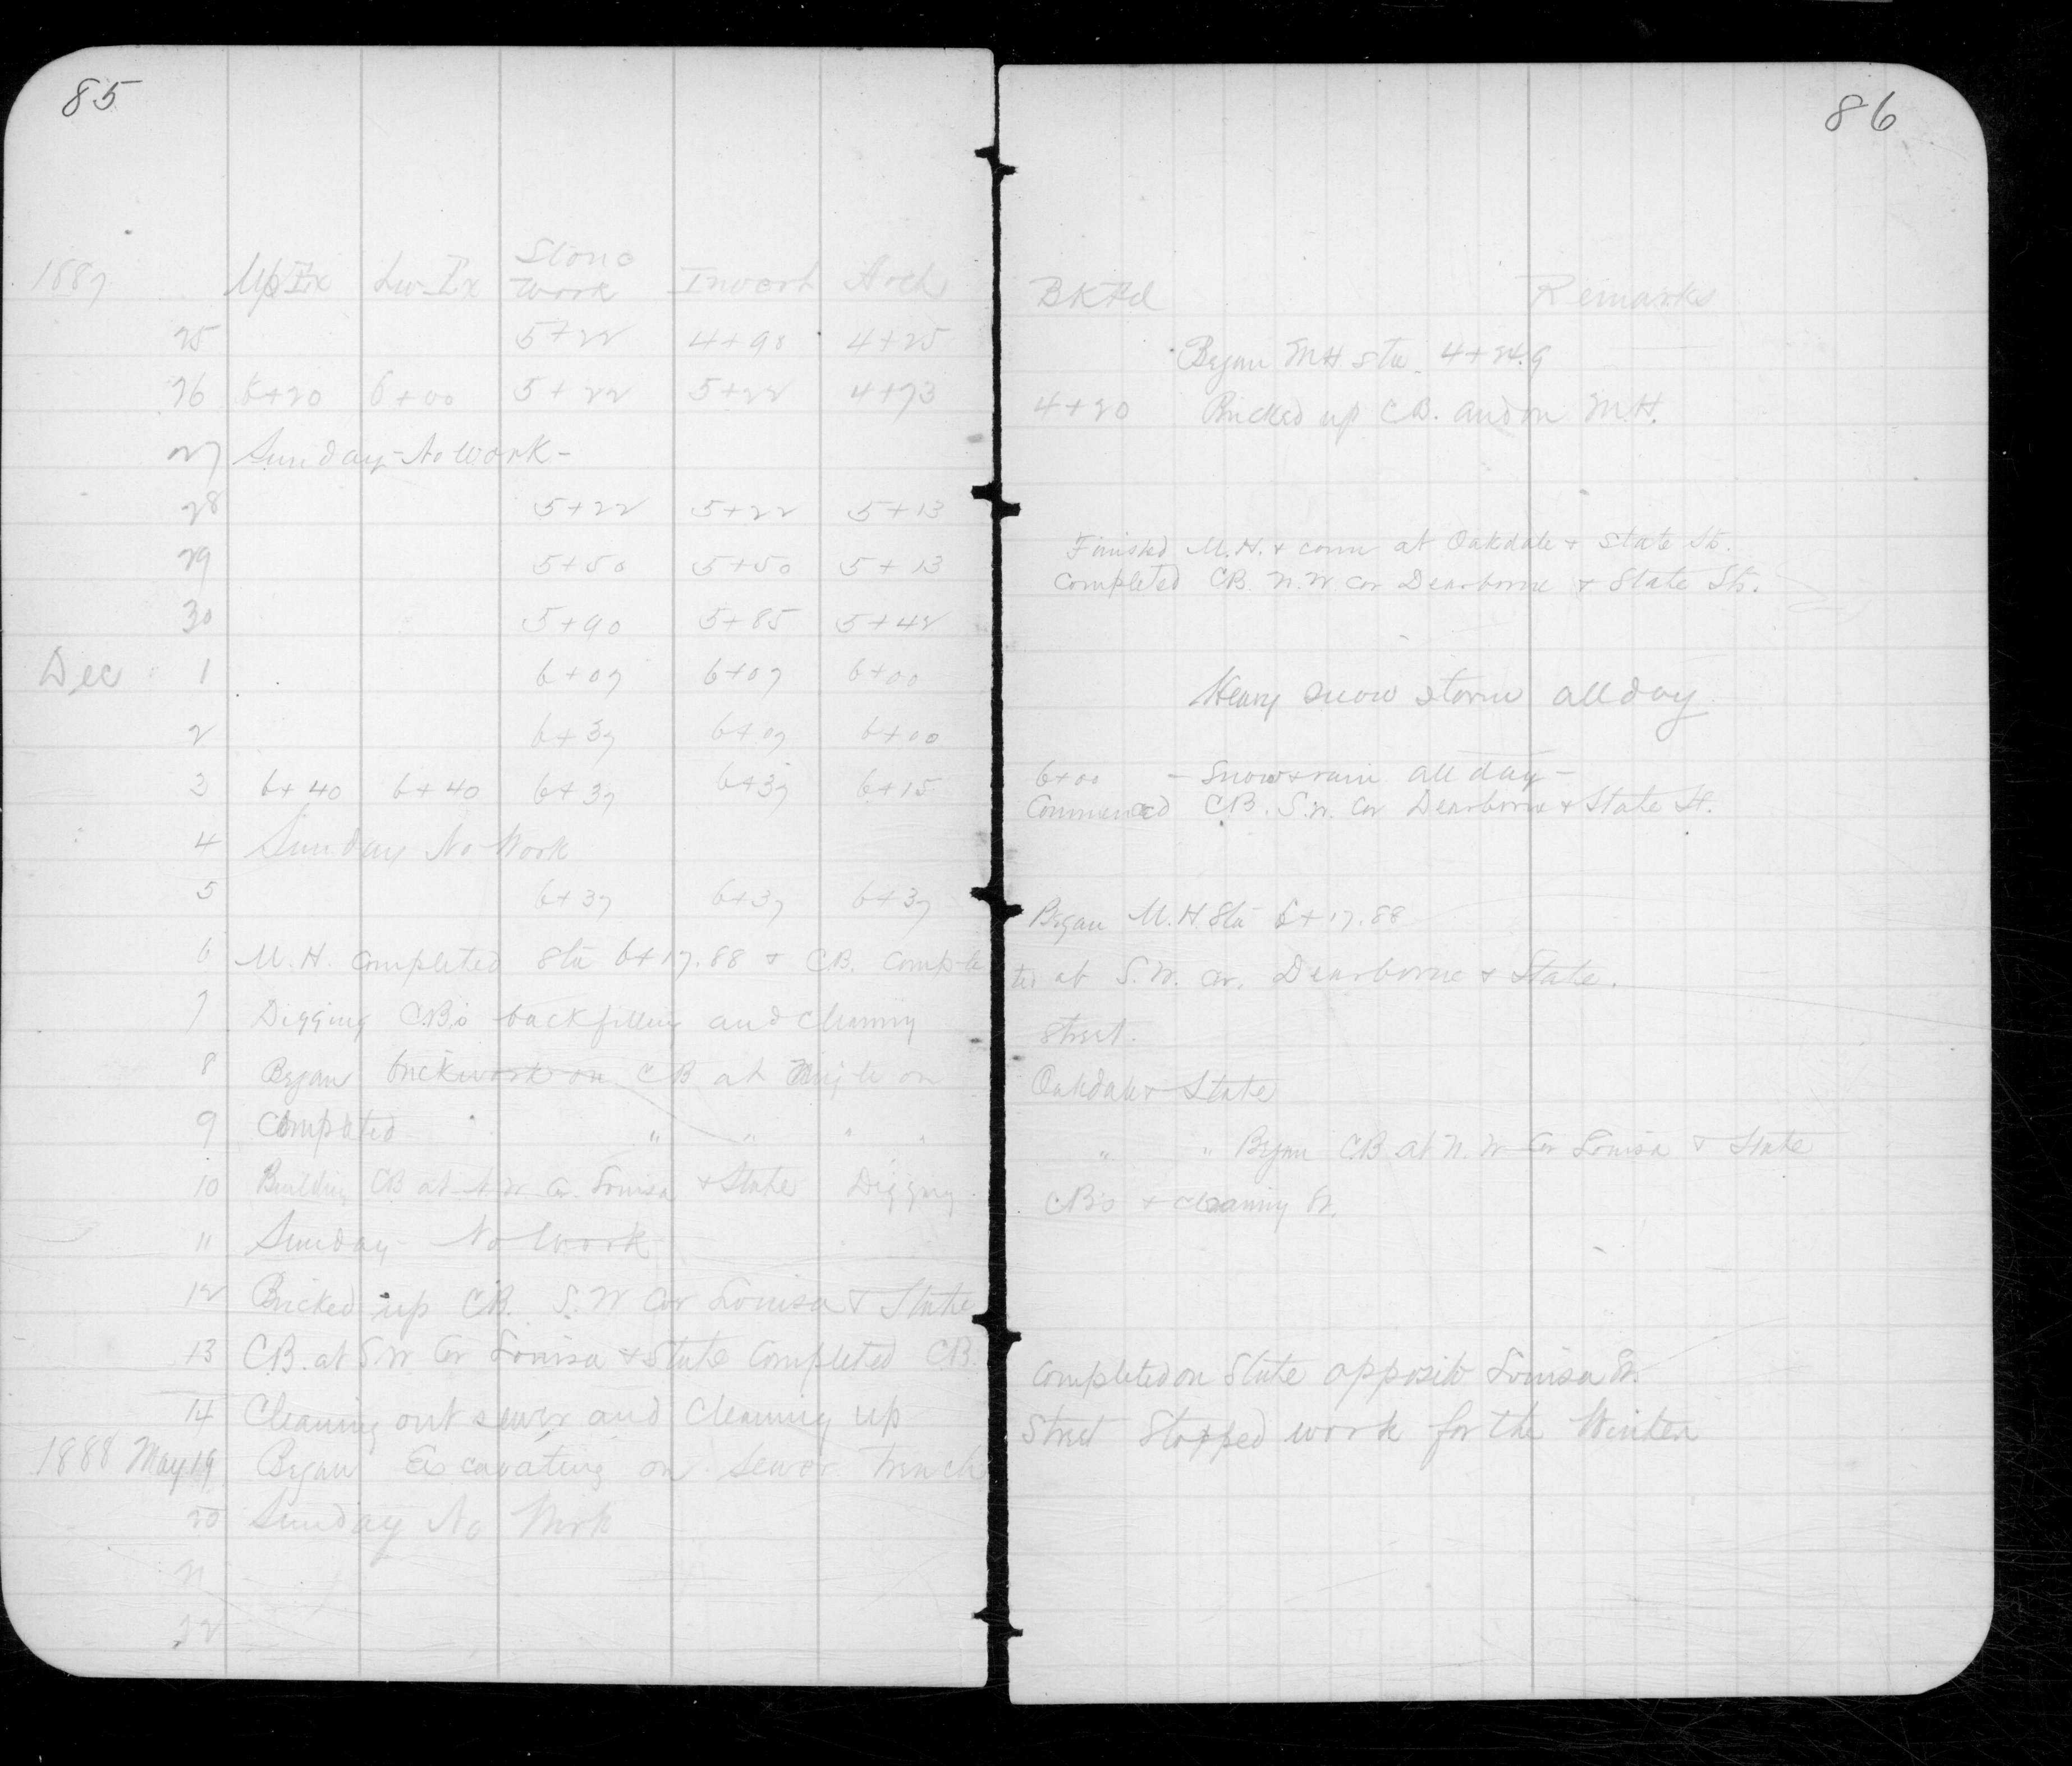 85
1887 Up Ex Lw Ex Stone Work Invert Arch
25 5+22 4+98 4+25
26 6+20 6+00 5+22 5+22 4+73
27 Sunday - No Work -
28 5+22 5+22 5+13
29 5+50 5+50 5+13
30 5+90 5+85 5+42
Dec 1 6+07 6+07 6+00
2 6+37 6+07 6+00
3 6+40 6+40 6+37 6+37 6+15
4 Sunday No Work
5 6+37 6+37 6+37
6 M.H. Completed Sta 6+17.88 & CB. Comple
7 Digging CB's backfilling and cleaning
8 Began brickwork on CB at Angle on
9 Completed " " " "
10 Building CB at N.W. Cor. Louisa & State Digging
11 Sunday No Work
12 Bricked up CB. S.W Cor Louisa & State
13 CB. at S.W Cor Louisa & State Completed CB.
14 Cleaning out sewer and Cleaning up
1888 May 19 Began Excavating on Sewer Trench
20 Sunday No Work
21
22
86
BKFd Remarks
Began MH Sta. 4+24.9
4+20 Bricked up CB. and on M.H.
Finished M.H. & conn at Oakdale & State Sts.
Completed CB. N.W. Cor Dearborne & State Sts.
Heavy snow storm all day
6+00 - Snow & rain all day -
Commenced CB. S.W. Cor Dearborne & State St.
Began M.H Sta 6+17.88
ted at S.W. Cor. Dearborne & State.
Street.
Oakdale & State
" " Began CB at N.W Cor Louisa & State
CB's & cleaning St.
Completed on State opposite Louisa St.
Street Stopped work for the Winter